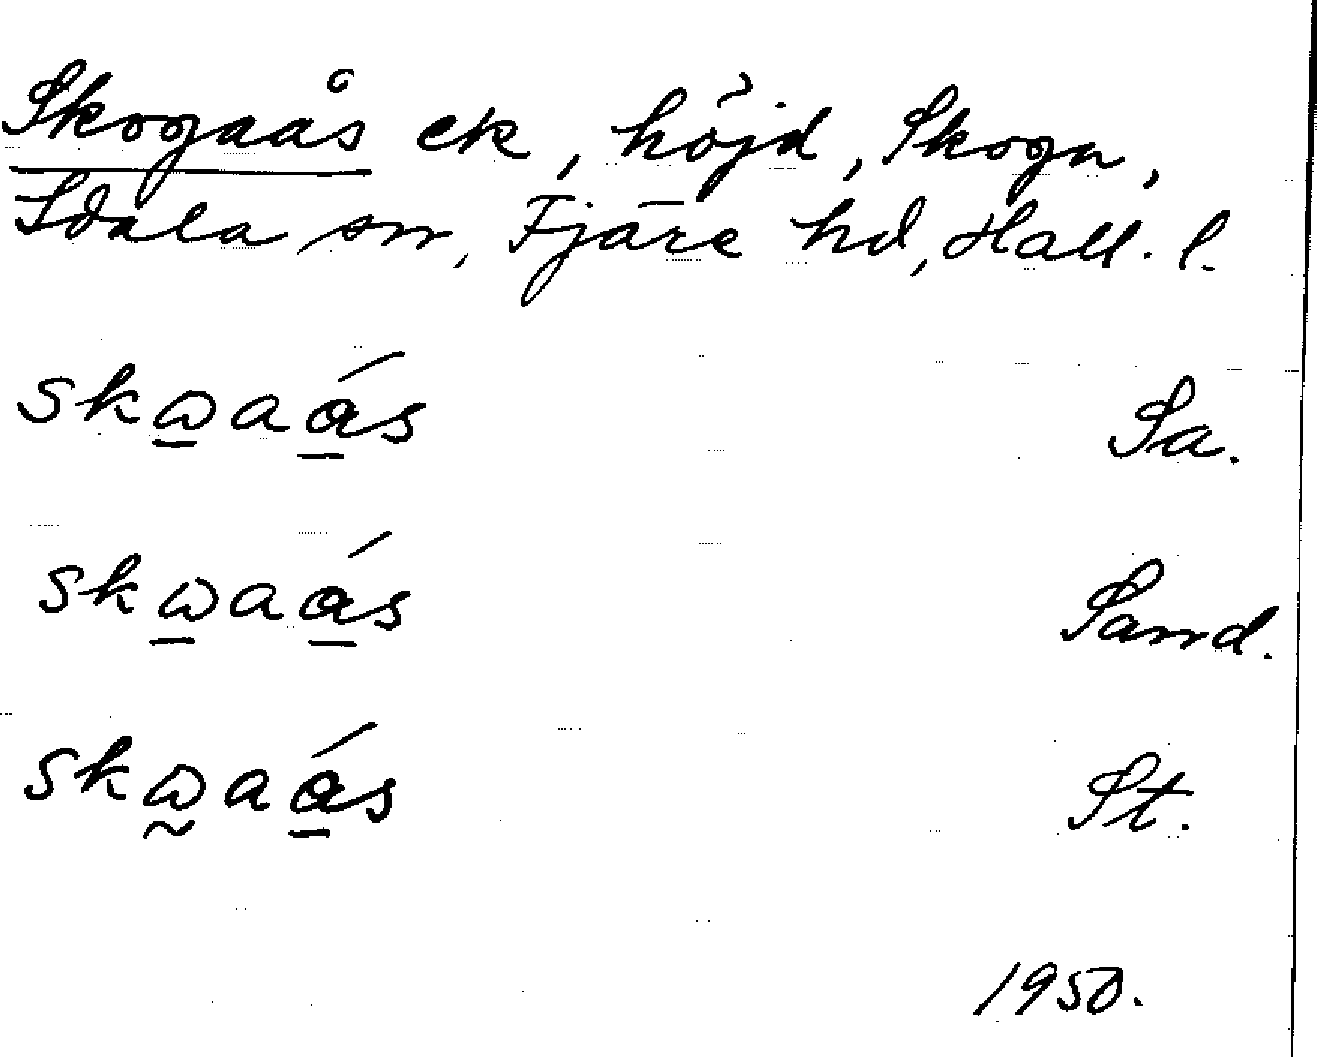 Skogaås ek, höjd, Skoga,
Idala sn, Fjäre hd, Hall. l.
skω̲aá̲s Sa.
skω̲aá̲s Sand.
skω̰aá̲s St.
1950.